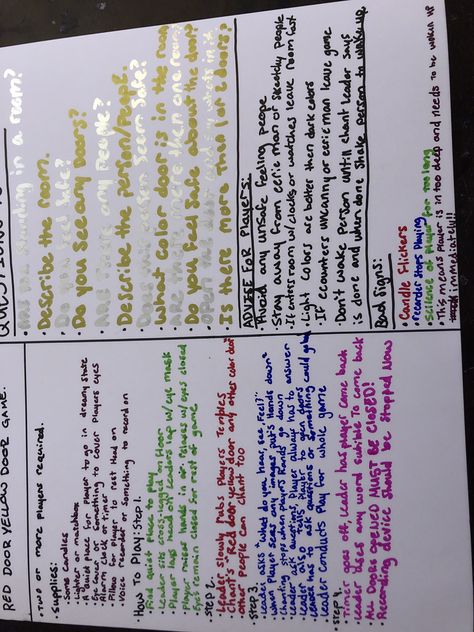 RED DOOR YELLOW DOOR GAME.
• Two or more players required.
• Supplies:
• Some Candles
• Lighter or matchbox
• A Quiet Place for Player to go in dreamy state
• Eye cover or Something to cover Players eyes
• Alarm clock or timer
• Pillow for Player to rest Head on
• Voice recorder or Something to record on
• How To Play: Step 1.
• Find Quiet Place to Play
• Leader sits cross-legged on floor
• Player lays head on leaders lap w/eye mask
• Player raises hands in air keeps eyes closed
• remain closed for rest of game
• Step 2.
• Leader slowly rubs Players Temples
• Chant's "Red door yellow door any other color door"
• Other people can chant too
• Step 3.
• Leader asks "What do you hear, see, Feel?"
• When Player sees any images, puts Hands down
• Chanting stops when players Hands go down
• Leader asks questions, Player always has to answer
• Leader also tells player to open doors
• Leader has to ask questions or Something could go bad
• Leader conducts Play for whole game
• Step 4.
• Timer goes off, Leader has player come back
• Leader Uses any word suitible To come back
• ALL DOORS OPENED MUST BE CLOSED!
• Recording device should be Stopped Now
standing in a room?
• Describe the room.
• Do you feel safe?
• Do you See any Doors?
any People?
• Describe the person/People.
Person Seem Safe?
• What color door is in the room
there more then one room?
• Do you feel Safe about the door?
• Is there more then 1 or 2 doors?
ADVISE FOR PLAYERS:
• Avoid any unsafe feeling people
• Stay away from eerie man or Sketchy people
• If enters room w/clocks or watches leave room fast
• Light colors are better then dark colors
• If encounters uncanny or eerie man leave game
• Don't wake Person until chant leader Says
is done and when done Shake Person to wake up.
Bad Signs:
• Candle flickers
• recorder Stops Playing
• Scilence of Player for too long
• This means Player is in too deep and needs to be woken up
immediately!!